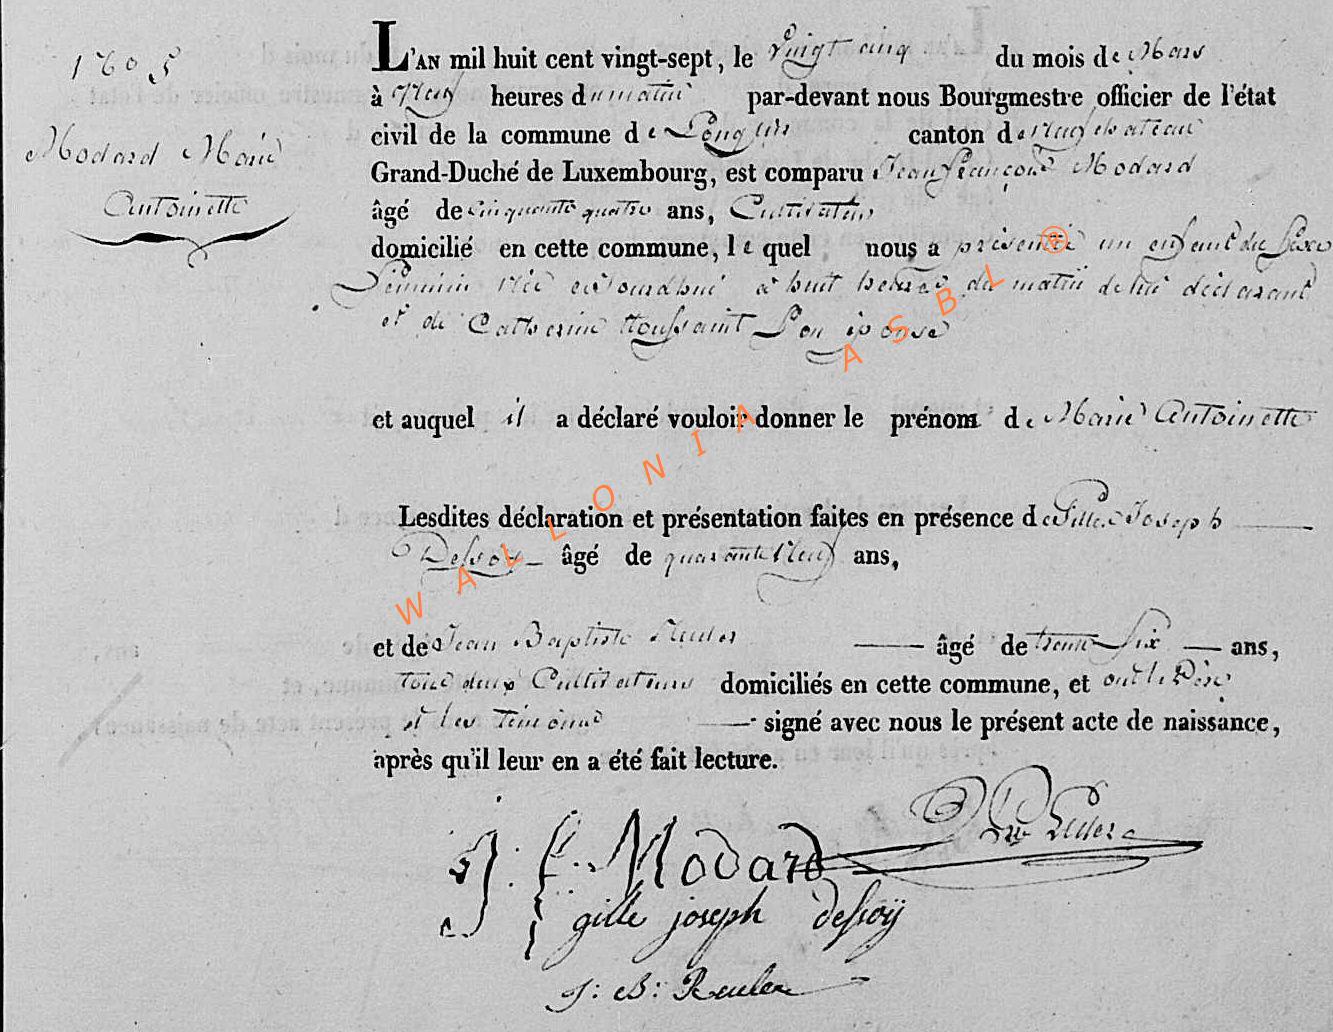 1605
Modard Marie
Antoinette
L'AN mil huit cent vingt-sept, le vingt cinq du mois de Mars
à Neuf heures du matin par-devant nous Bourgmestre officier de l'état
civil de la commune de Longlier canton de Neufchateau
Grand-Duché de Luxembourg, est comparu Jean françois Modard
âgé de cinquante quatre ans, Cultivateur
domicilié en cette commune, le quel nous a présenté un enfant du Sexe
Féminin née aujourdhui à huit heures du matin de lui déclarant
et de Catherine Toussaint Son épouse
et auquel il a déclaré vouloir donner le prénom de Marie Antoinette
Lesdites déclaration et présentation faites en présence de Gille Joseph
Dessoy âgé de quarante Neuf ans,
et de Jean Baptiste âgé de trente Six ans,
tous deux Cultivateurs domiciliés en cette commune, et ont le Père
et les témoins signé avec nous le présent acte de naissance,
après qu'il leur en a été fait lecture.
J: f: Modard
gille joseph dessoÿ
J: B: Reuler
WALLONIA ASBL ®